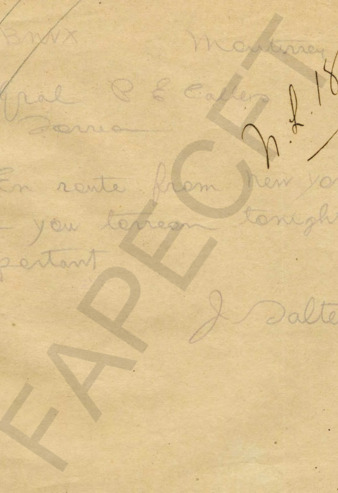 BNVX Monterrey
N.L. 18
gral P E Calles
Torreon
En route from New yo
you torreon tonight
portant
J Salte
FAPECFT